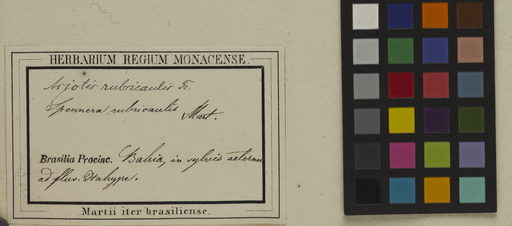 HERBARIUM REGIUM MONACENSE.
Aciotis rubricaulis Tr.
Spennera rubricaulis Mart.
Brasilia Provinc. Bahia, in sylvis aeternis
ad fluv. Itahype.
Martii iter brasiliense.